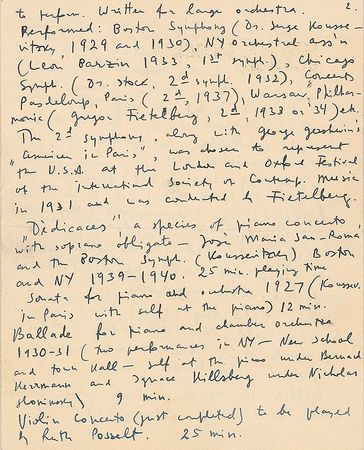 2.
to perform. Written for large orchestra.
Performed: Boston Symphony (Dr. Serge Kousse-
vitzky, 1929 and 1930), NY Orchestral ass'n
(Leon Barzin 1933. 1st symph.), Chicago
Symph. (Dr. Stock, 2d symph. 1932), Concerts
Pasdeloup, Paris (2d, 1937), Warsaw, Philhar-
monic (Gregor Fietelberg, 2d, 1933 or 34) etc.
The 2d symphony, along with George Gershwin's
"American in Paris", was chosen to represent
the U.S.A. at the London and Oxford Festival
of the International Society of Contemp. Music
in 1931 and was conducted by Fietelberg.
"Dedicaces", a species of piano concerto
with soprano obligato — José Maria San-Romá,
and the Boston Symph. (Koussevitzky) Boston
and NY 1939-1940. 25 min. playing time
Sonata for piano and orchestra 1927 (Koussev.
in Paris with self at the piano) 12 min.
Ballade for piano and chamber orchestra
1930-31 (two performances in NY — New School
and Town Hall — self at the piano under Bernard
Herrmann and Ignace Hillsberg under Nicholas
Slonimsky) 9 min.
Violin Concerto (just completed) to be played
by Ruth Posselt. 25 min.